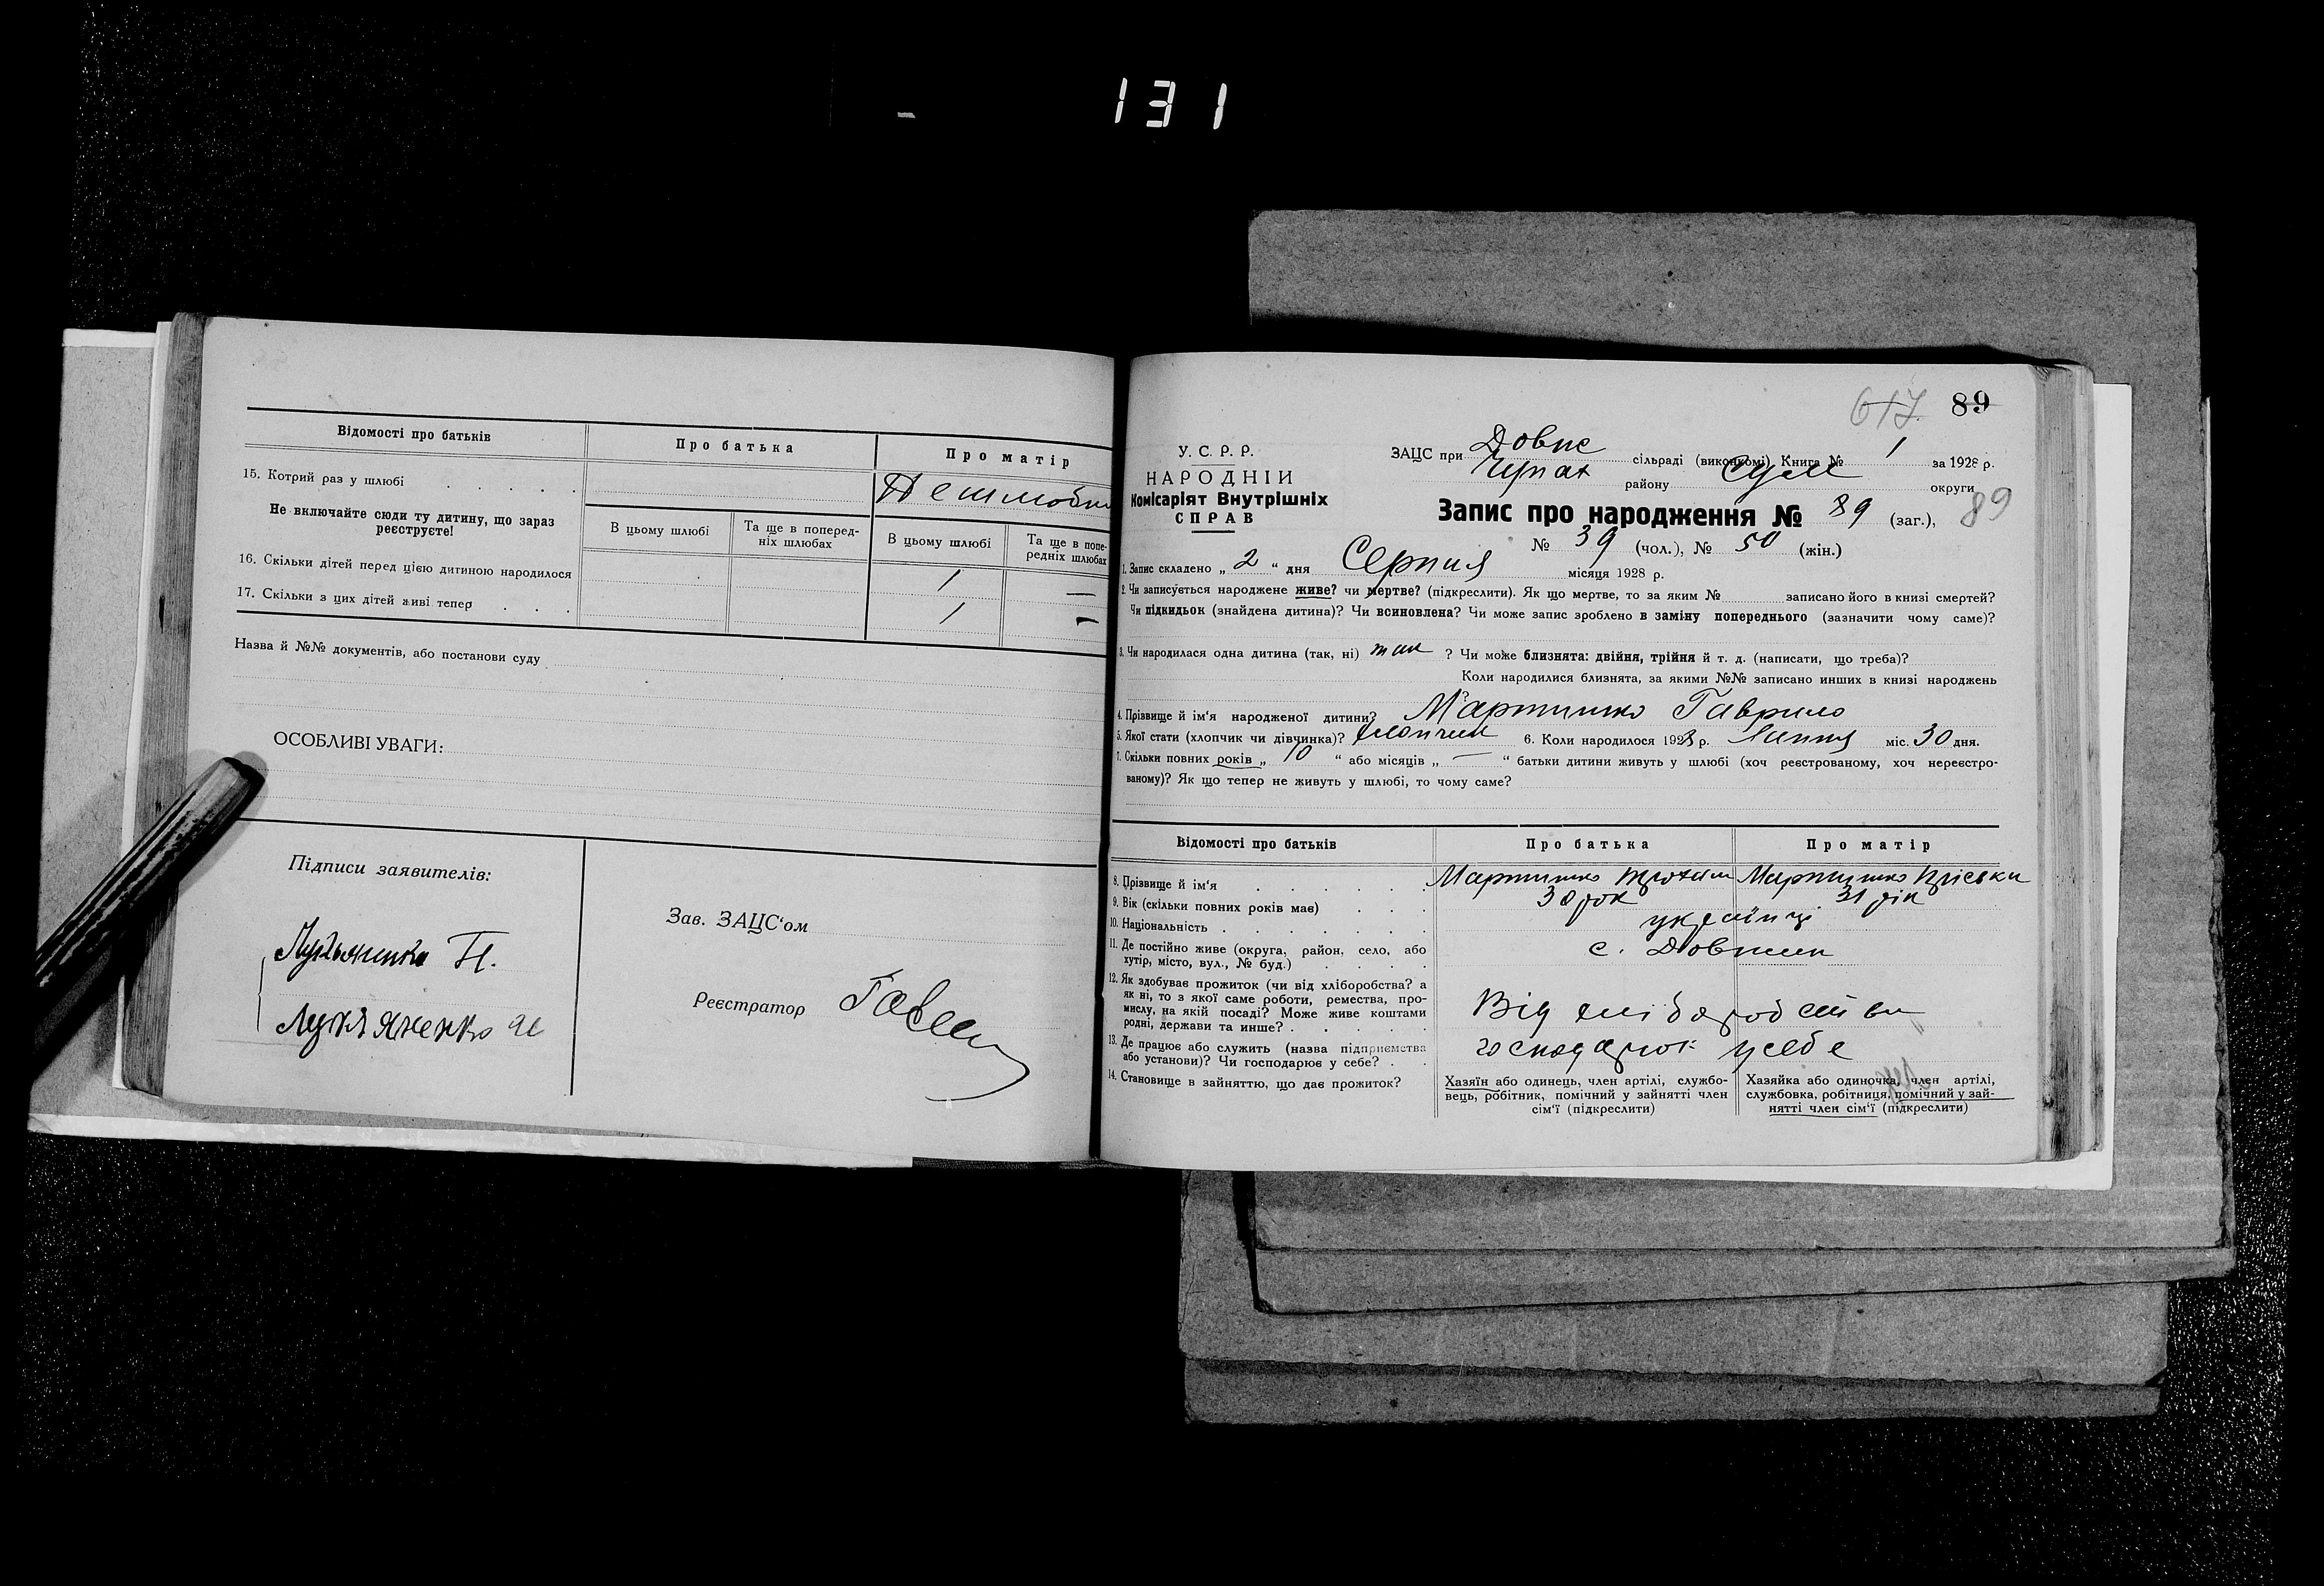 131
Відомості про батьків
Про батька
Про матір
15. Котрий раз у шлюбі
Не включайте сюди ту дитину, що зараз реєструєте!
В цьому шлюбі
Та ще в поперед-
ніх шлюбах
В цьому шлюбі
Та ще в попе-
редніх шлюбах
16. Скільки дітей перед цією дитиною народилося 1 —
17. Скільки з цих дітей живі тепер 1 —
Назва й №№ документів, або постанови суду
ОСОБЛИВІ УВАГИ:
Підписи заявителів:
Зав. ЗАЦС'ом
Реєстратор
617. 89
У. С. Р. Р.
НАРОДНІЙ
Комісаріят Внутрішніх
СПРАВ
ЗАЦС при Довж сільраді (виконкомі) Книга № 1 за 1928 р.
району Сум округи
Запис про народження № 89 (заг.), 89
№ 39 (чол.), № 50 (жін.)
1. Запис складено „ 2 “ дня Серпня місяця 1928 р.
2. Чи записується народжене живе? чи мертве? (підкреслити). Як що мертве, то за яким № записано його в книзі смертей?
Чи підкидьок (знайдена дитина)? Чи всиновлена? Чи може запис зроблено в заміну попереднього (зазначити чому саме)?
3. Чи народилася одна дитина (так, ні) так ? Чи може близнята: двійня, трійня й т. д. (написати, що треба)?
Коли народилися близнята, за якими №№ записано инших в книзі народжень
4. Прізвище й ім'я народженої дитини? Мартишко Гаврило
5. Якої стати (хлопчик чи дівчинка)? Хлопчик 6. Коли народилося 1928 р. Липня міс. 30 дня.
7. Скільки повних років „ 10 “ або місяців „ — “ батьки дитини живуть у шлюбі (хоч реєстрованому, хоч нереєстро-
ваному)? Як що тепер не живуть у шлюбі, то чому саме?
Відомості про батьків
Про батька
Про матір
8. Прізвище й ім'я Мартишко Трохим Мартишко Пріська
9. Вік (скільки повних років має) 30 рок 31 рік
10. Національність українці
11. Де постійно живе (округа, район, село, або
хутір, місто, вул., № буд.) с. Довжик
12. Як здобуває прожиток (чи від хліборобства? а
як ні, то з якої саме роботи, ремества, про-
мислу, на якій посаді? Може живе коштами
родні, держави та инше? Від хліборобства
13. Де працює або служить (назва підприємства
або установи)? Чи господарює у себе? господарює у себе
14. Становище в зайняттю, що дає прожиток?
Хазяїн або одинець, член артілі, службо-
вець, робітник, помічний у зайнятті член
сім'ї (підкреслити)
Хазяйка або одиночка, член артілі,
службовка, робітниця, помічний у зай-
нятті член сім'ї (підкреслити)